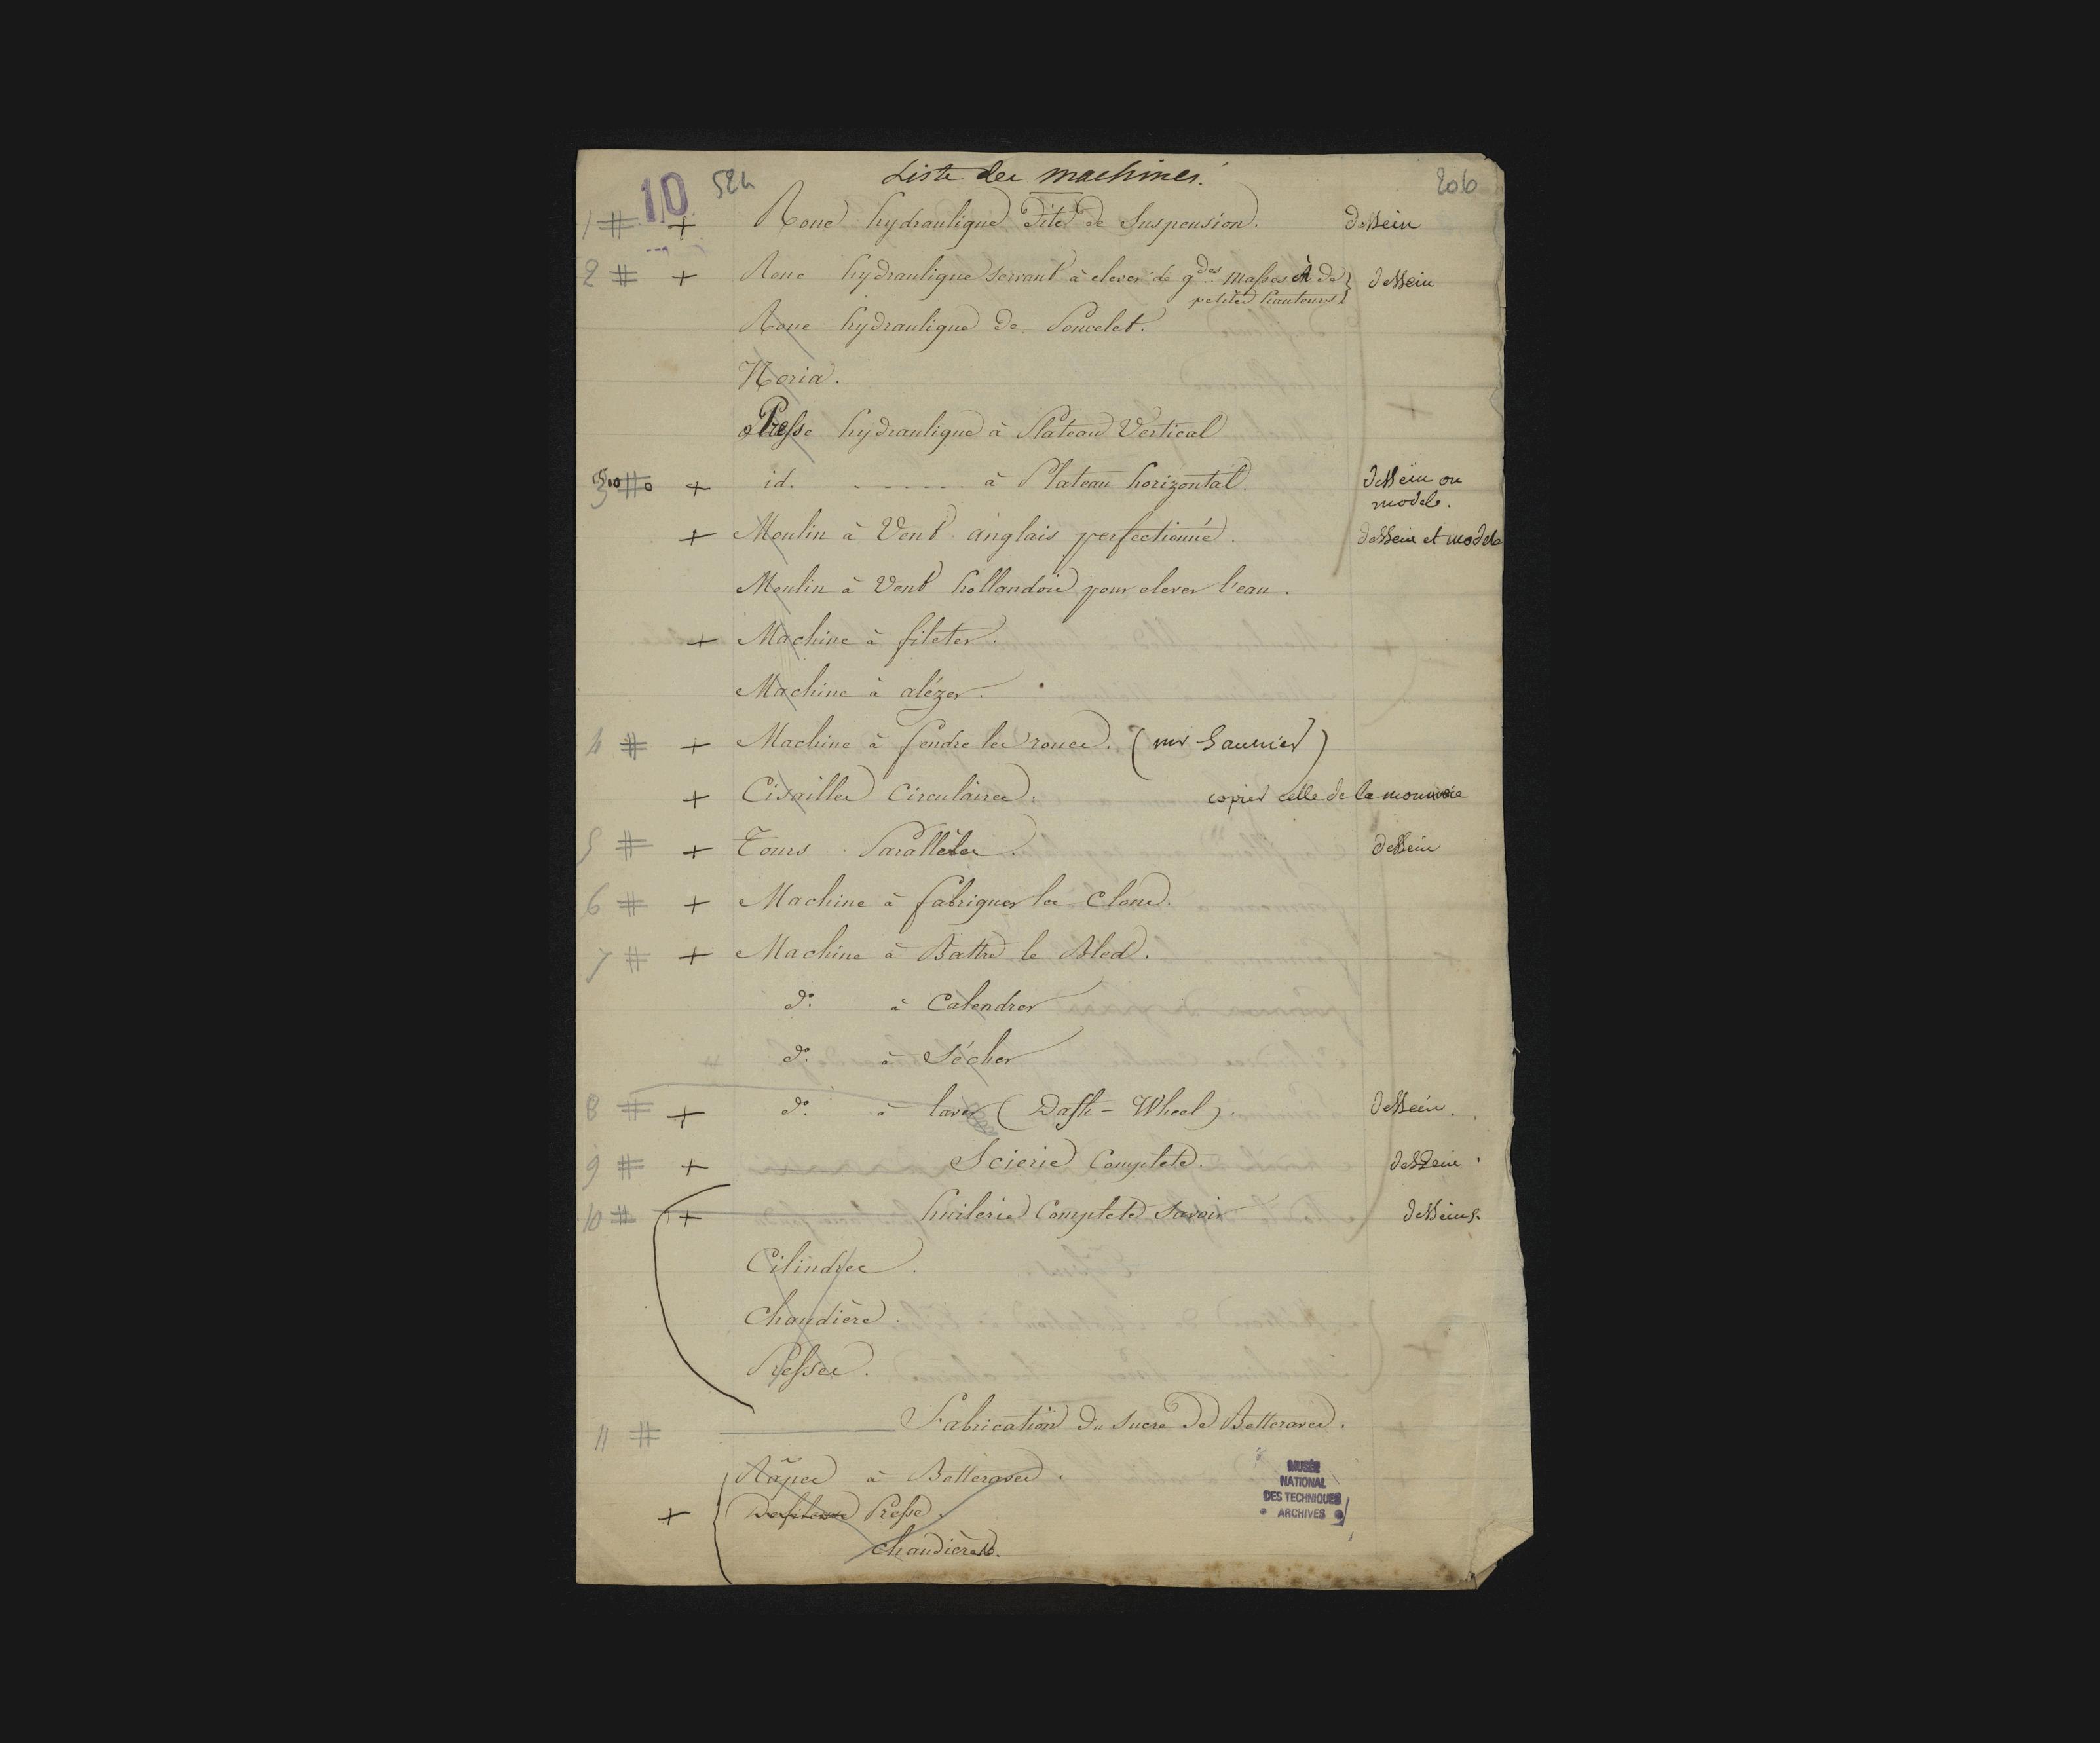 Liste des machines.
10 524 206
1 # + Roue hydraulique dite de Suspension. dessein
2 # + Roue hydraulique servant à elever de gdes Masses À de dessein
petites hauteurs
Roue hydraulique de Poncelet.
Noria.
Presse hydraulique à Plateau Vertical
3 # + id. - - - - - - - à Plateau horizontal. dessein ou
modele.
+ Moulin à Vent anglais perfectionné. dessein et modele
Moulin à Vent hollandois pour elever l'eau.
+ Machine à fileter.
Machine à alézer.
4 # + Machine à fendre les roues. (mr Saunier)
+ Cisailles Circulaires. copier celle de la monnoie
5 # + Tours Parallèles. dessein
6 # + Machine à fabriquer les Clous.
7 # + Machine à Battre le Bled.
do. à Calendrer
do. à Sécher
8 # + do. à laver (Dash - Wheel). dessein.
9 # + Scierie Complete. dessein.
10 # + huilerie Complete Savoir desseins.
Cilindres.
Chaudière.
Presses.
11 # Fabrication du Sucre de Betteraves.
Râpes à Betteraves.
+ Presse.
chaudières.
MUSÉE
NATIONAL
DES TECHNIQUES
• ARCHIVES •